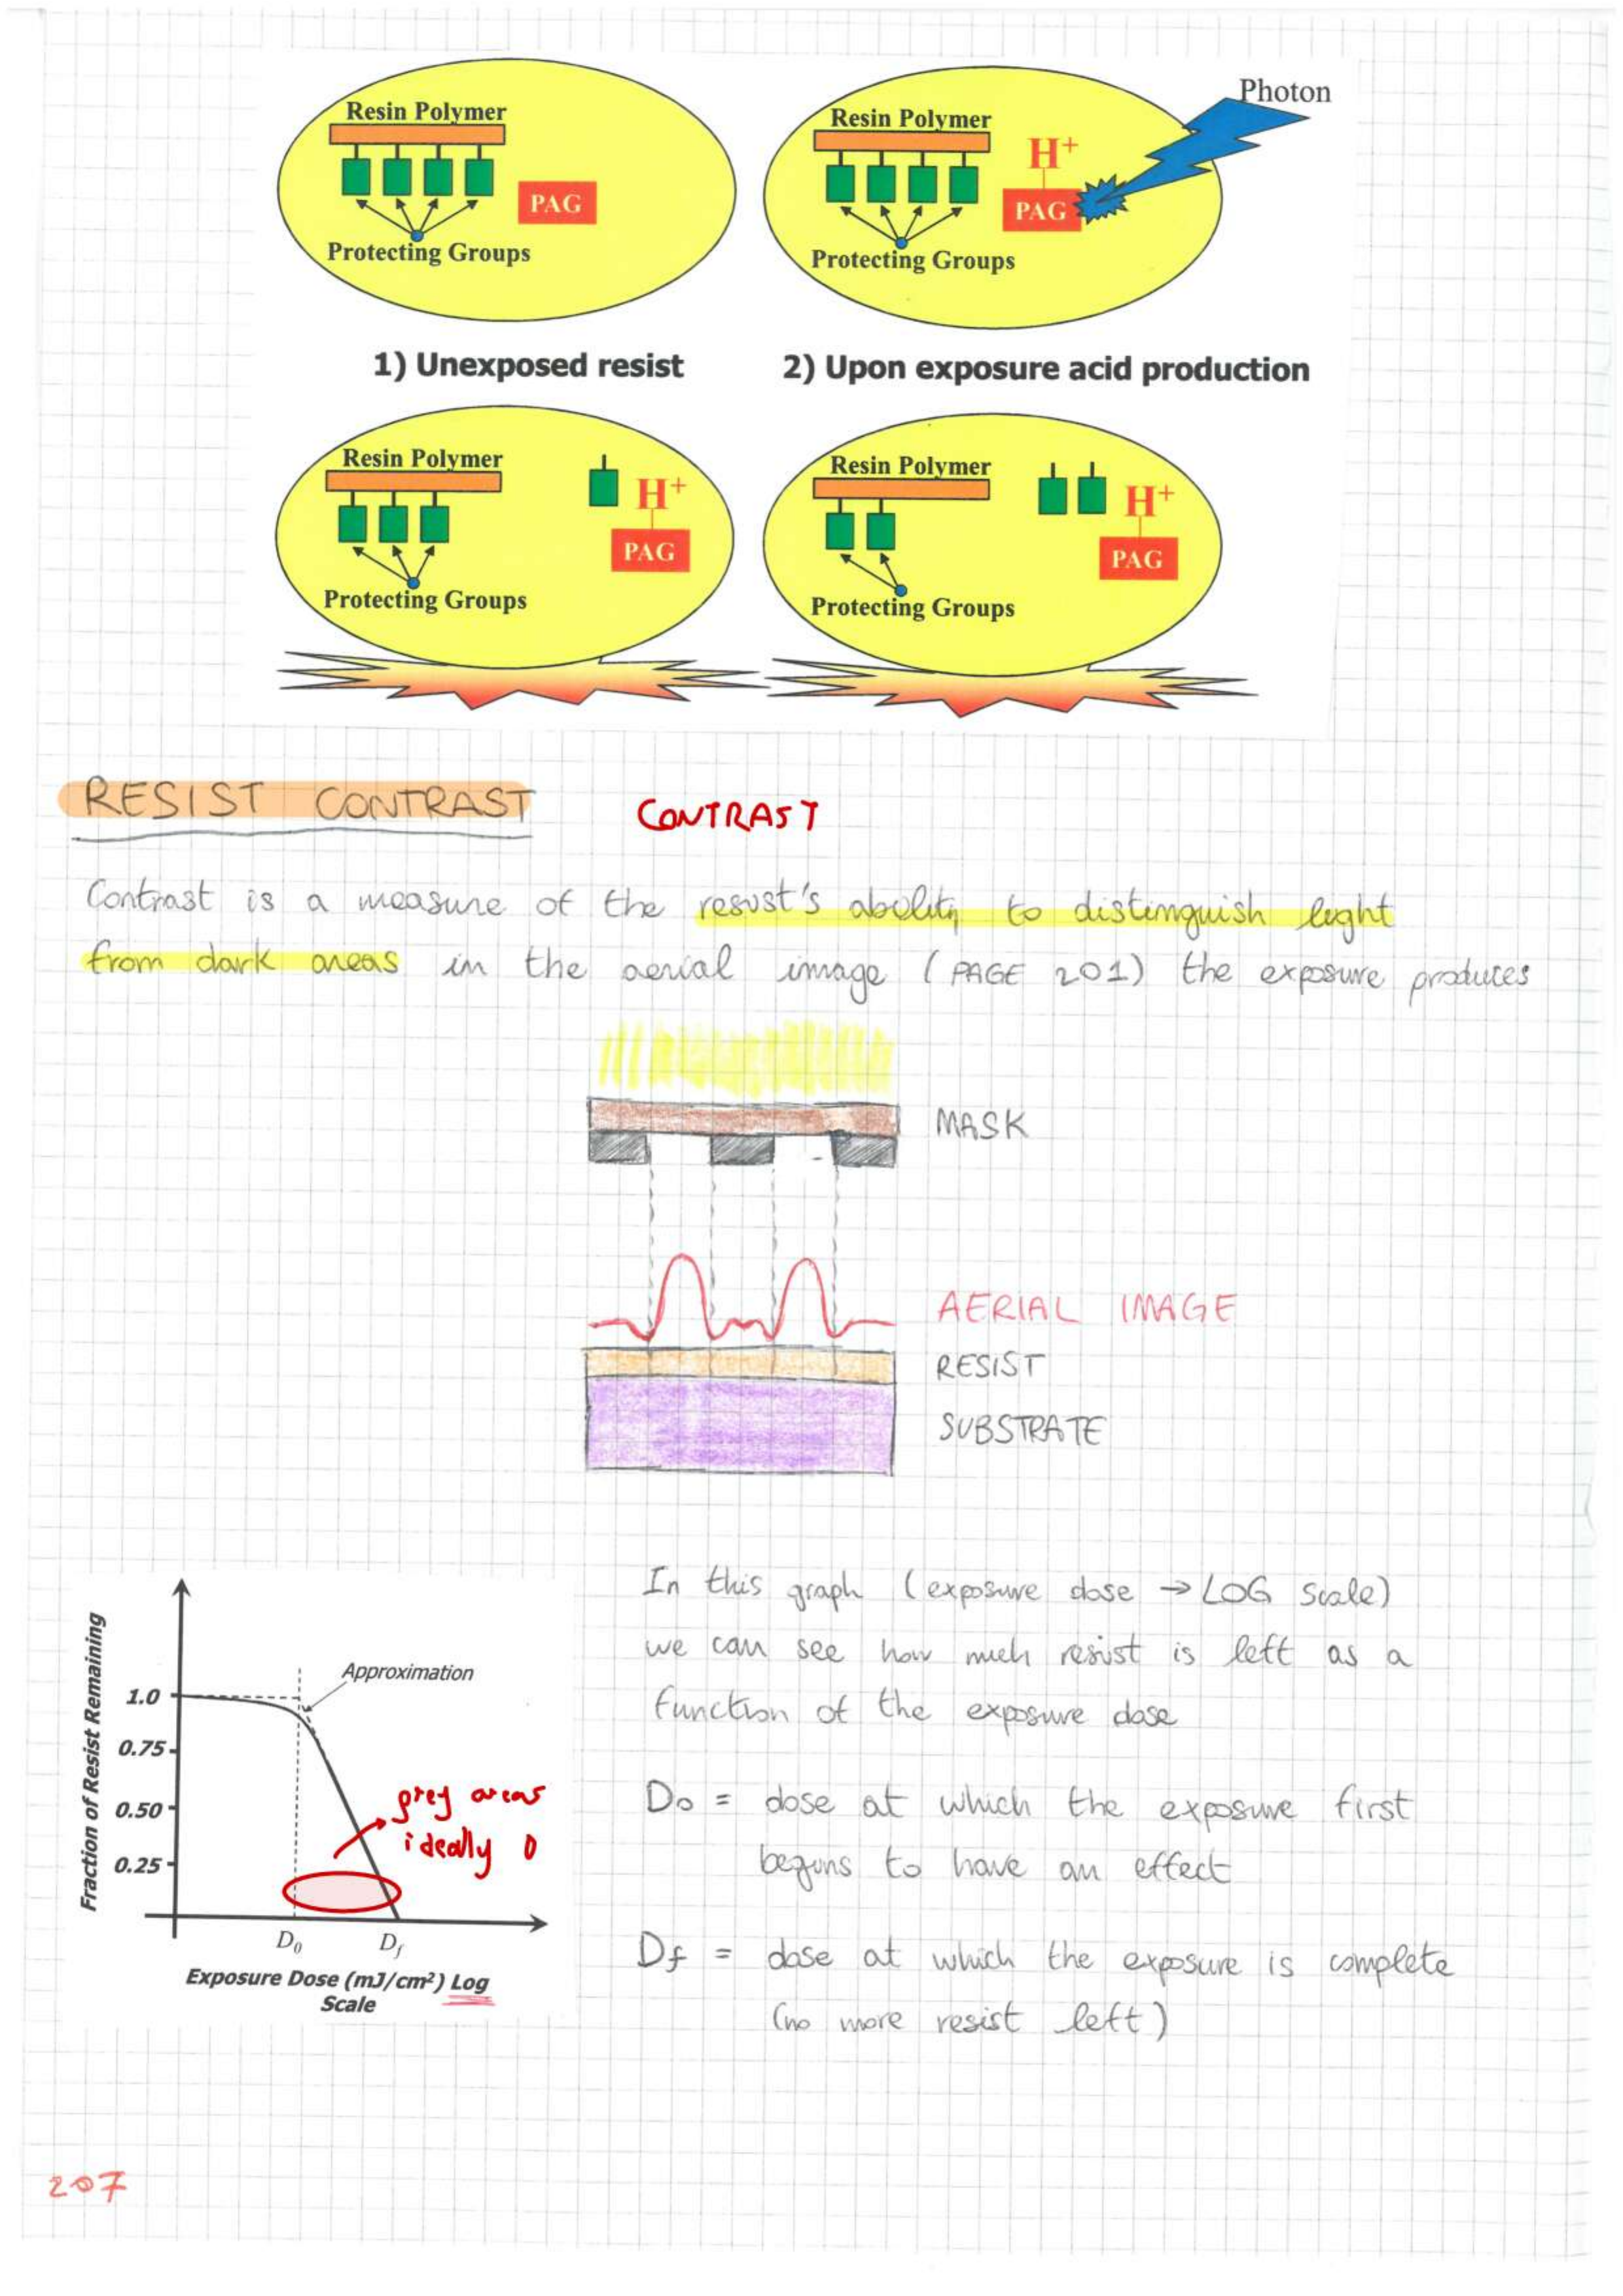 Resin Polymer
PAG
Protecting Groups
Resin Polymer
H+
PAG
Photon
Protecting Groups
1) Unexposed resist
2) Upon exposure acid production
Resin Polymer
H+
PAG
Protecting Groups
Resin Polymer
H+
PAG
Protecting Groups
RESIST CONTRAST
CONTRAST
Contrast is a measure of the resist's ability to distinguish light
from dark areas in the aerial image (PAGE 201) the exposure produces
MASK
AERIAL IMAGE
RESIST
SUBSTRATE
Fraction of Resist Remaining
1.0
0.75
0.50
0.25
Approximation
grey areas
ideally 0
D0
Df
Exposure Dose (mJ/cm²) Log
Scale
In this graph (exposure dose → LOG scale)
we can see how much resist is left as a
function of the exposure dose
D0 = dose at which the exposure first
begins to have an effect
Df = dose at which the exposure is complete
(no more resist left)
207